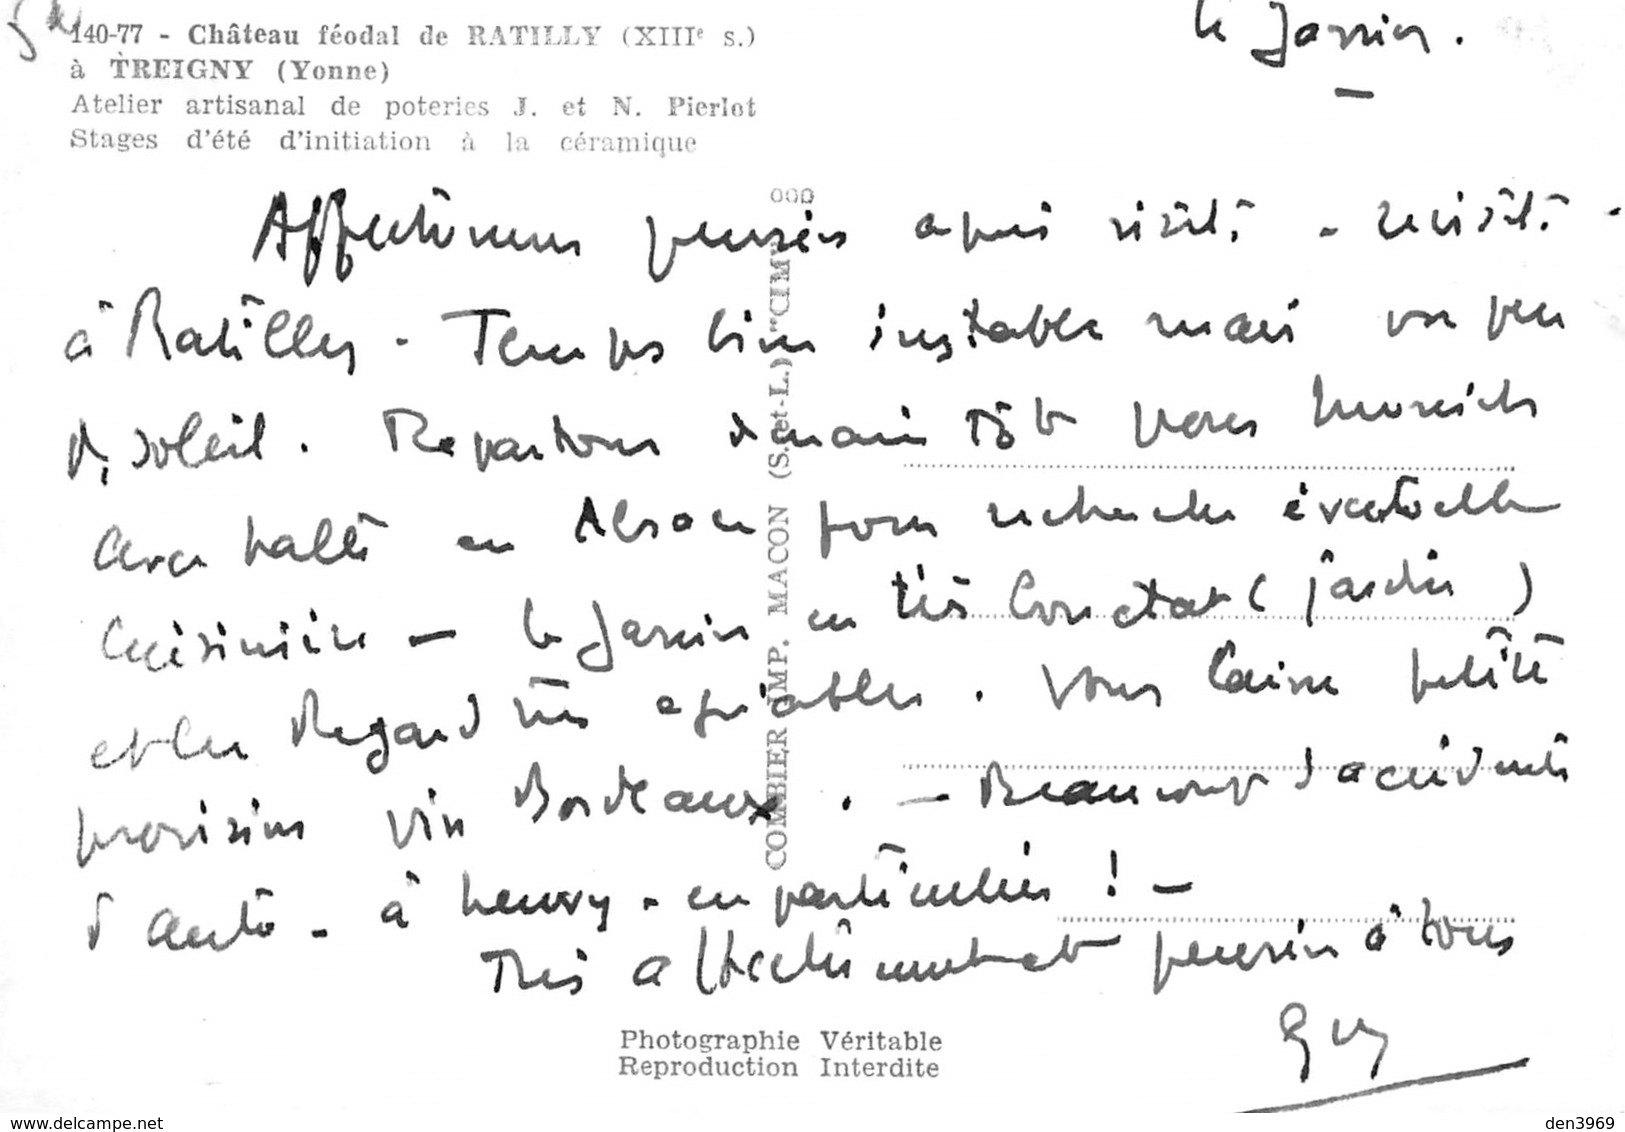 le Jarrier.
140-77 - Château féodal de RATILLY (XIIIe s.)
à TREIGNY (Yonne)
Atelier artisanal de poteries J. et N. Pierlot
Stages d'été d'initiation à la céramique
Affectueuses pensées après visite - revisite -
à Ratilly - Temps bien instable mais un peu
de soleil. Repartons demain tôt vers Munich
avec halte en Alsace pour recherche éventuelle
cuisinière - le Jarrier en très bon état (jardin)
et les Regard très agréables. Vous laisse petite
provision vin Bordeaux. - Beaucoup d'accidents
d'auto - à - en particulier ! -
Très affectueusement et pensées à tous
Guy
COMBIER IMP. MACON (S.-et-L.) "CIM"
Photographie Véritable
Reproduction Interdite
www.delcampe.net
den3969